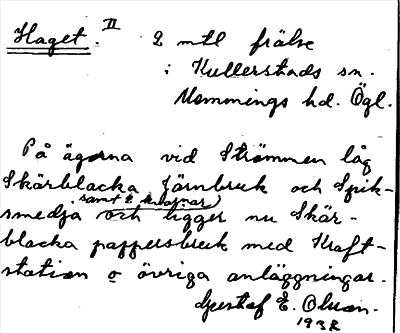 Haget. II 2 mtl frälse
i Kullerstads sn.
Memmings hd. Ögl.
På ägorna vid Strömmen låg
Skärblacka Järnbruk och Spik-
samt 2 kvarnar)
smedja och ligger nu Skär-
blacka pappersbruk med Kraft-
station o övriga anläggningar.
Gustaf E. Olsson.
1932